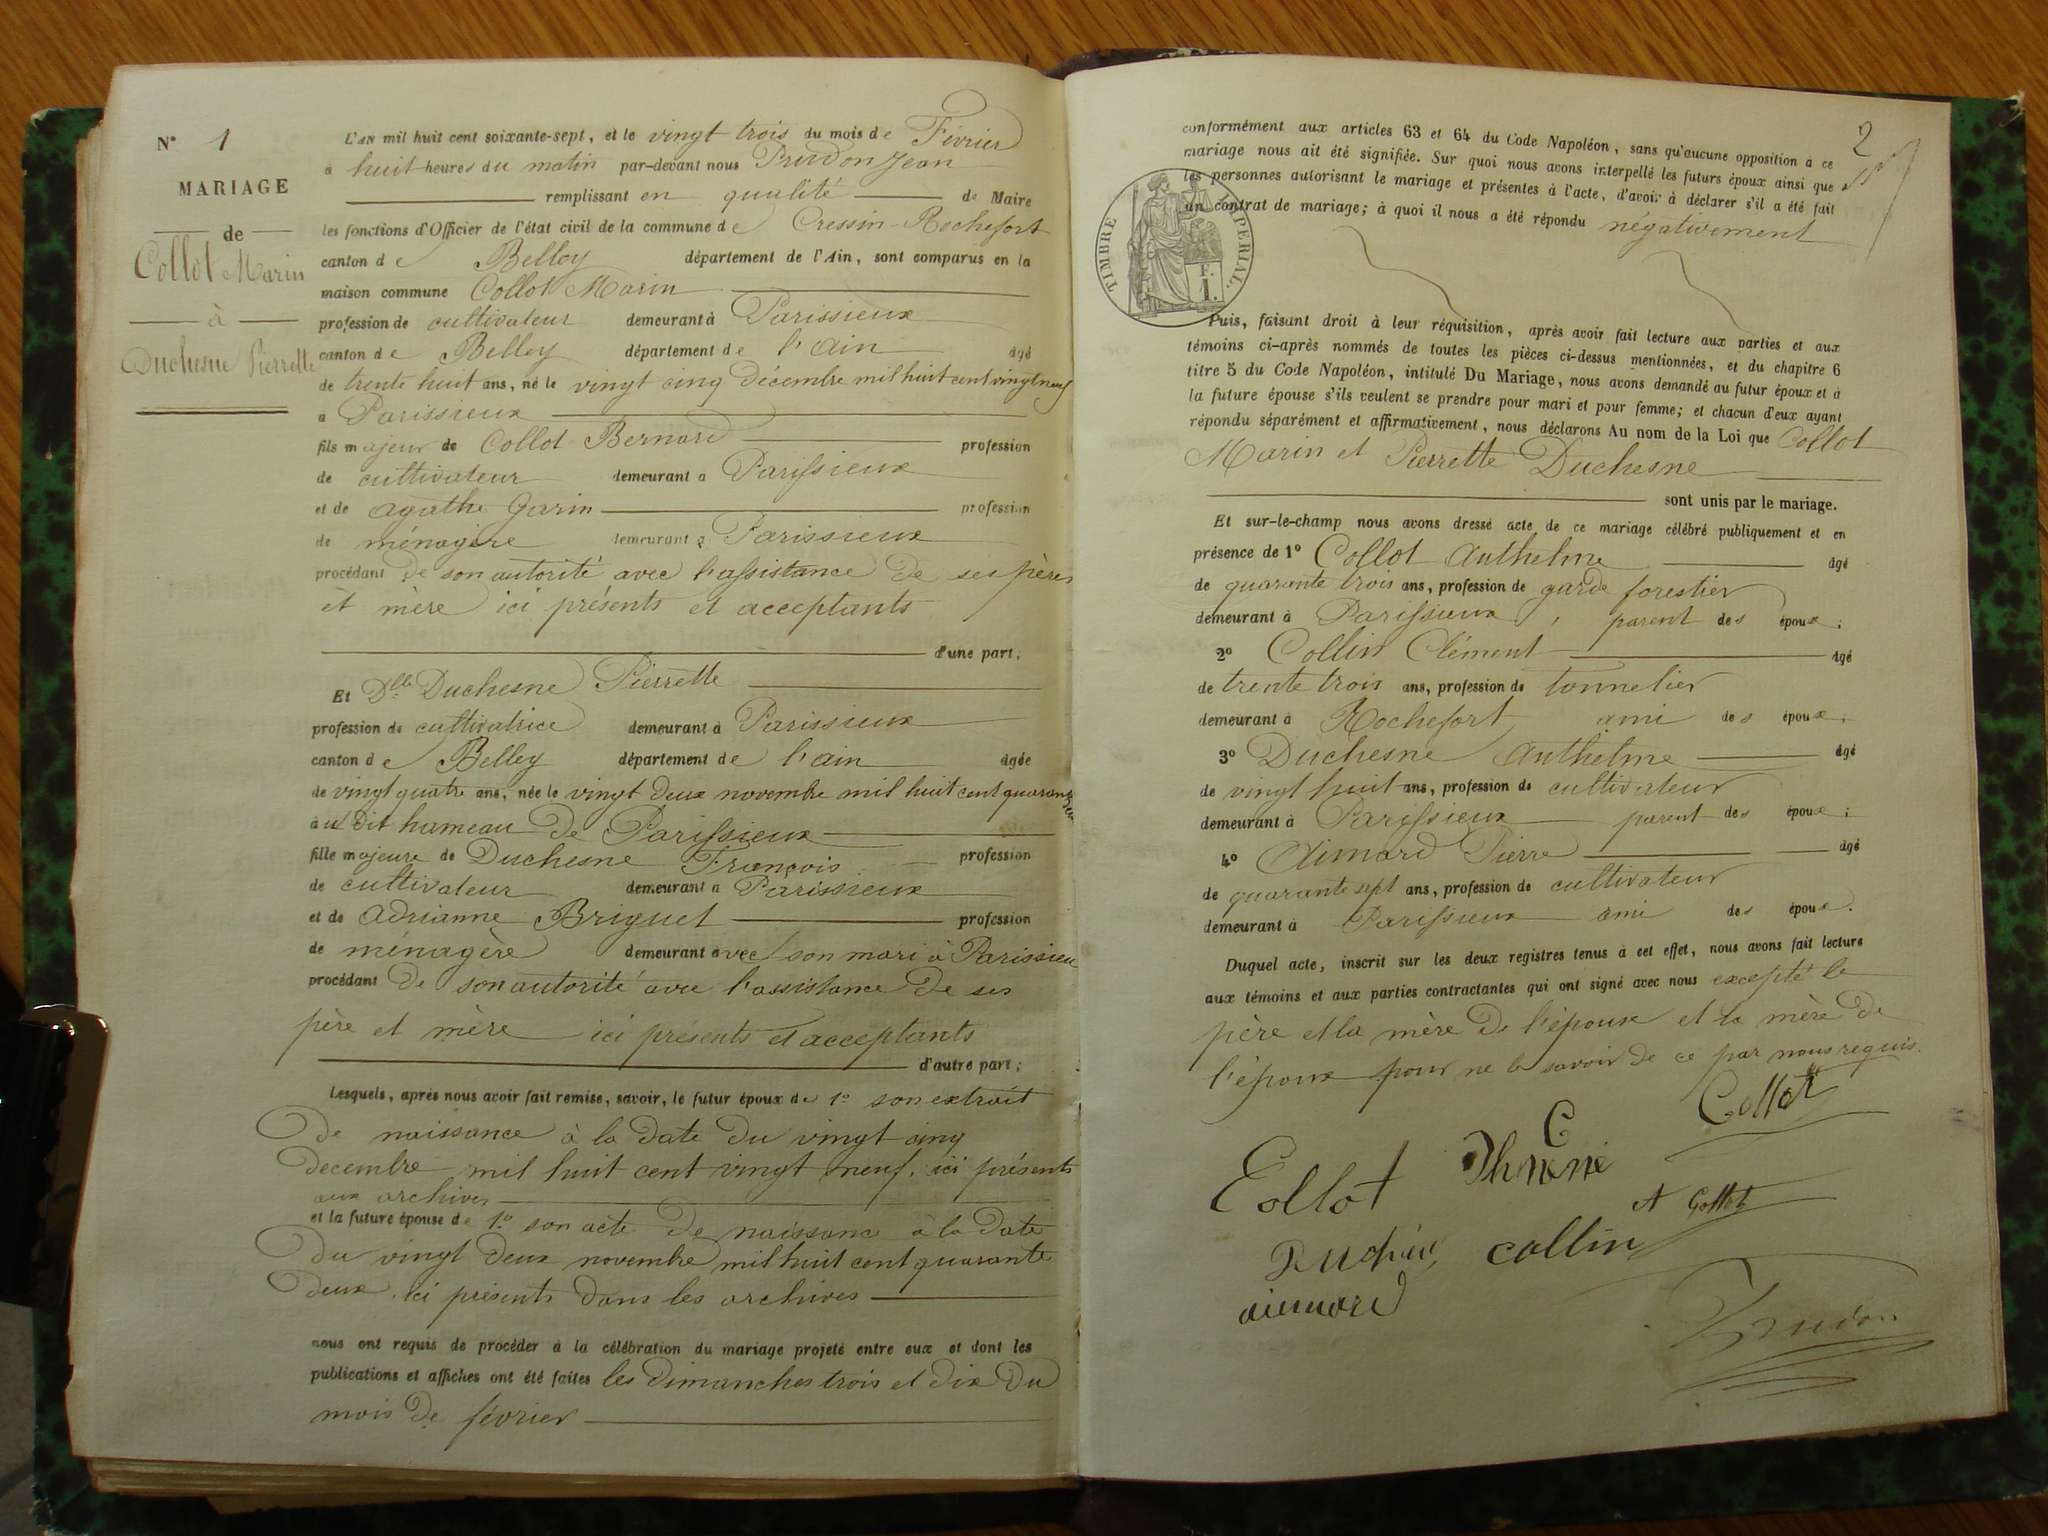 N° 1
MARIAGE
de
Collot Marin
à
Duchesne Pierrette
L'AN mil huit cent soixante-sept, et le vingt trois du mois de Février
à huit heures du matin par-devant nous Prudon Jean
remplissant en qualité de Maire
les fonctions d'Officier de l'état civil de la commune de Cressin-Rochefort
canton de Belley département de l'Ain, sont comparus en la
maison commune Collot Marin
profession de cultivateur demeurant à Parissieux
canton de Belley département de l'ain âgé
de trente huit ans, né le vingt cinq Décembre mil huit cent vingt neuf
a Parissieux
fils majeur de Collot Bernard profession
de cultivateur demeurant a Parissieux
et de agathe Garin profession
de ménagère demeurant à Parissieux
procédant de son autorité avec l'assistance de ses père
et mère ici présents et acceptants
d'une part;
Et Dlle Duchesne Pierrette
profession de cultivatrice demeurant à Parissieux
canton de Belley département de l'ain âgée
de vingt quatre ans, née le vingt deux novembre mil huit cent quarante
au dit hameau de Parissieux
fille majeure de Duchesne François profession
de cultivateur demeurant a Parissieux
et de Adrianne Briguet profession
de ménagère demeurant avec son mari à Parissieu
procédant De son autorité avec l'assistance de ses
père et mère ici présents et acceptants
d'autre part;
Lesquels, après nous avoir fait remise, savoir, le futur époux de 1° son extrait
De naissance à la date Du vingt cinq
Decembre mil huit cent vingt neuf, ici présents
aux archives
et la future épouse de 1° son acte de naissance à la date
Du vingt deux novembre mil huit cent quarante
Deux, ici présents dans les archives
nous ont requis de procéder à la célébration du mariage projeté entre eux et dont les
publications et affiches ont été faites les Dimanches trois et dix Du
mois de février
2
conformément aux articles 63 et 64 du Code Napoléon, sans qu'aucune opposition à ce
mariage nous ait été signifiée. Sur quoi nous avons interpellé les futurs époux ainsi que
les personnes autorisant le mariage et présentes à l'acte, d'avoir à déclarer s'il a été fait
un contrat de mariage; à quoi il nous a été répondu négativement
TIMBRE IMPERIAL.
F.
1.
Puis, faisant droit à leur réquisition, après avoir fait lecture aux parties et aux
témoins ci-après nommés de toutes les pièces ci-dessus mentionnées, et du chapitre 6
titre 5 du Code Napoléon, intitulé Du Mariage, nous avons demandé au futur époux et à
la future épouse s'ils veulent se prendre pour mari et pour femme; et chacun d'eux ayant
répondu séparément et affirmativement, nous déclarons Au nom de la Loi que Collot
Marin et Pierrette Duchesne
sont unis par le mariage.
Et sur-le-champ nous avons dressé acte de ce mariage célébré publiquement et en
présence de 1° Collot Anthelme âgé
de quarante trois ans, profession de garde forestier
demeurant à Parissieux, parent des époux;
2° Collin Clément âgé
de trente trois ans, profession de tonnelier
demeurant à Rochefort ami des époux;
3° Duchesne Anthelme âgé
de vingt huit ans, profession de cultivateur
demeurant à Parissieux parent des époux;
4° Aimard Pierre âgé
de quarante sept ans, profession de cultivateur
demeurant à Parissieux ami des époux.
Duquel acte, inscrit sur les deux registres tenus à cet effet, nous avons fait lecture
aux témoins et aux parties contractantes qui ont signé avec nous excepté le
père et la mère de l'époux et la mère de
l'époux pour ne le savoir de ce par nous requis.
Collot
Collot
A Collot
collin
aimard
Prudon